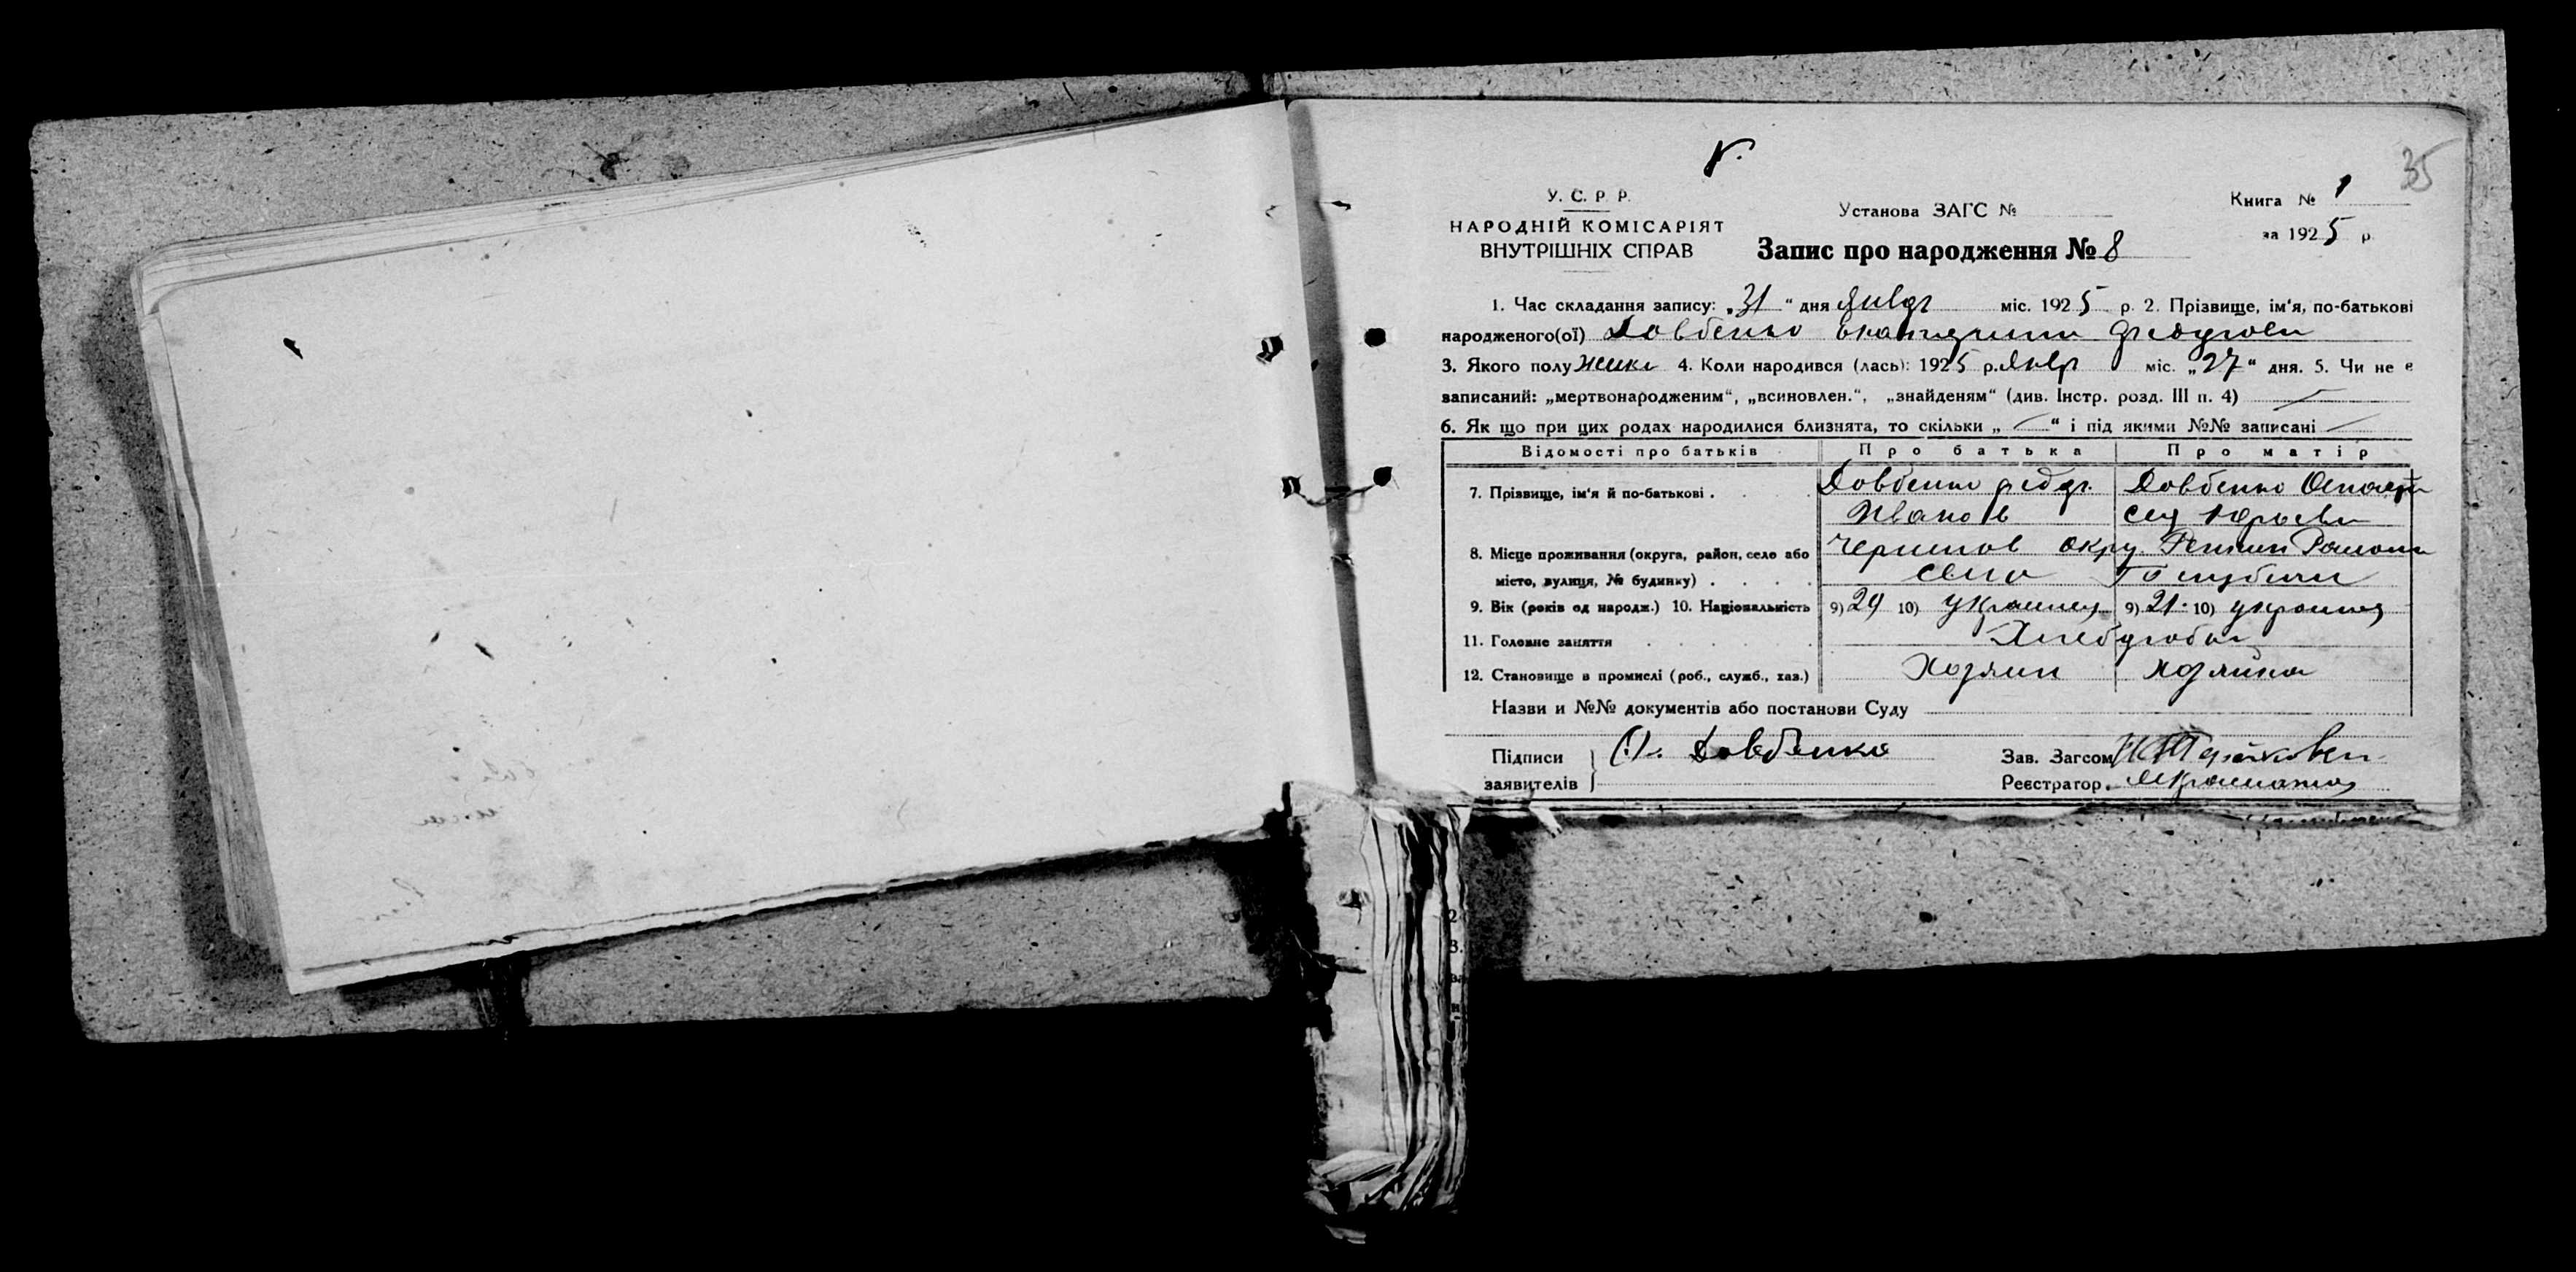 35
У. С. Р. Р.
НАРОДНІЙ КОМІСАРІЯТ
ВНУТРІШНІХ СПРАВ
Установа ЗАГС №
Запис про народження № 8
Книга № 1
за 1925 р.
1. Час складання запису: „31“ дня Январ міс. 1925 р. 2. Прізвище, ім‘я, по-батькові
народженого(ої) Довбенко Екатерина Федорова
3. Якого полу женск 4. Коли народився (лась): 1925 р. Янвр міс. „27“ дня. 5. Чи не є
записаний: „мертвонародженим“, „всиновлен.“, „знайденям“ (див. Інстр. розд. III п. 4)
6. Як що при цих родах народилися близнята, то скільки „ “ і під якими №№ записані
Відомості про батьків Про батька Про матір
7. Прізвище, ім‘я й по-батькові . Довбенко Федор Довбенко
Иванов Юрьева
8. Місце проживання (округа, район, село або Чернигов окру Репкин Района
місто, вулиця, № будинку) . . . . село Голубичи
9. Вік (років од народж.) 10. Національність 9) 10) Украинец 9) 21 10) украинец
11. Головне заняття Хлеборобы
12. Становище в промислі (роб., служб., хаз.) Хозяин хозяйка
Назви и №№ документів або постанови Суду
Підписи Довбенко Зав. Загсом
заявителів Реєстратор